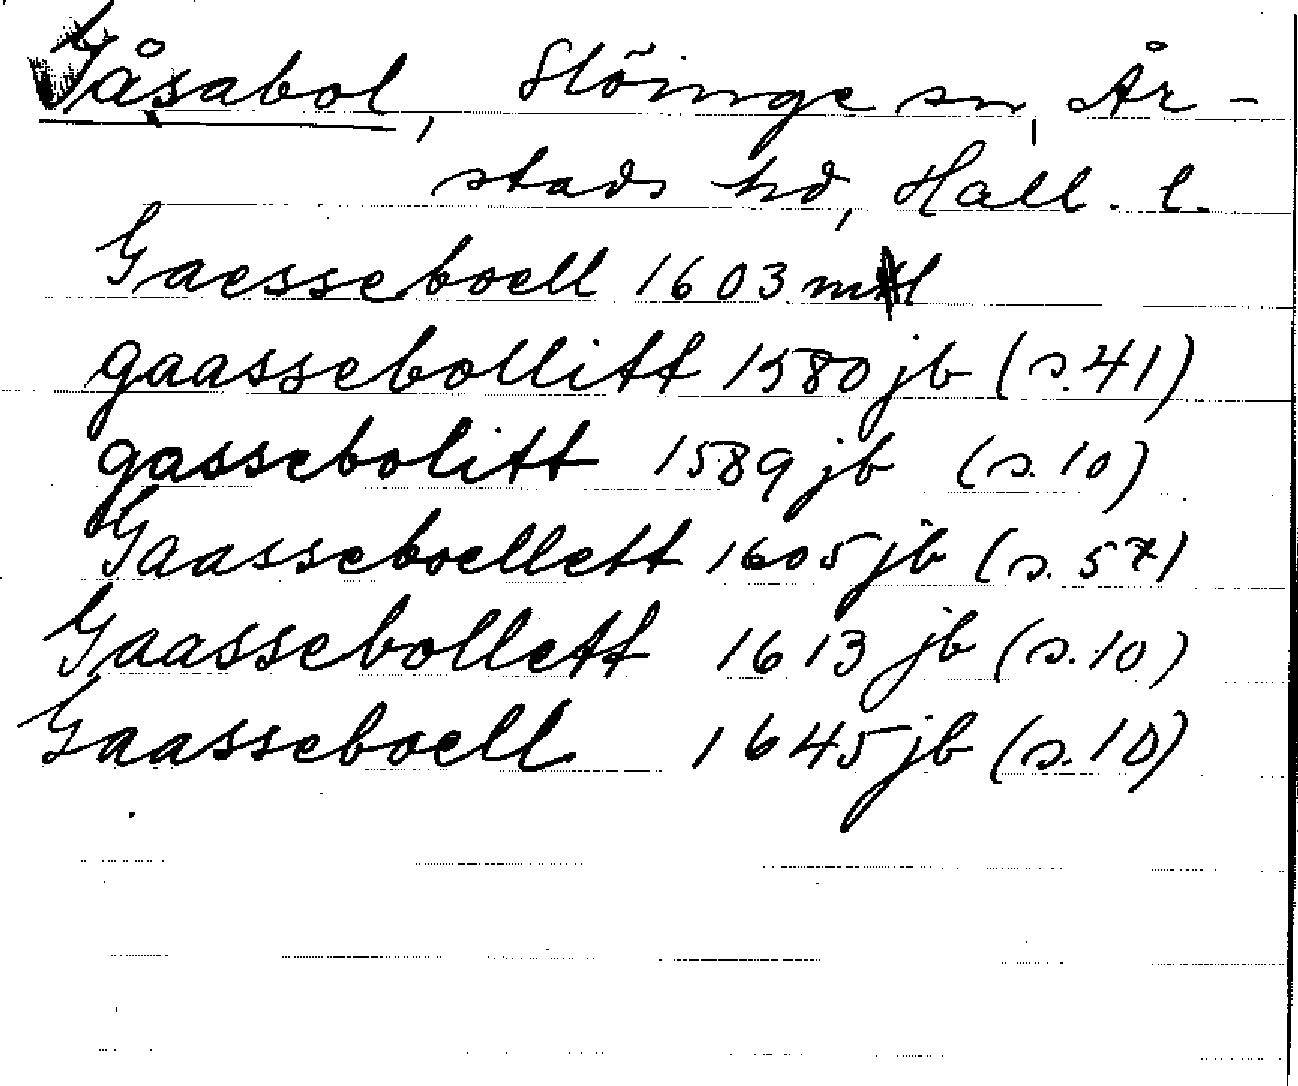 Gåsabol, Slöinge sn, År-
stads hd, Hall. l.
Gaesseboell 1603 mtl
gaassebollitt 1580 jb (s. 41)
gassebolitt 1589 jb (s. 10)
Gaasseboellett 1605 jb (s. 5*)
Gaassebollett 1613 jb (s. 10)
Gaasseboell 1645 jb (s. 10)